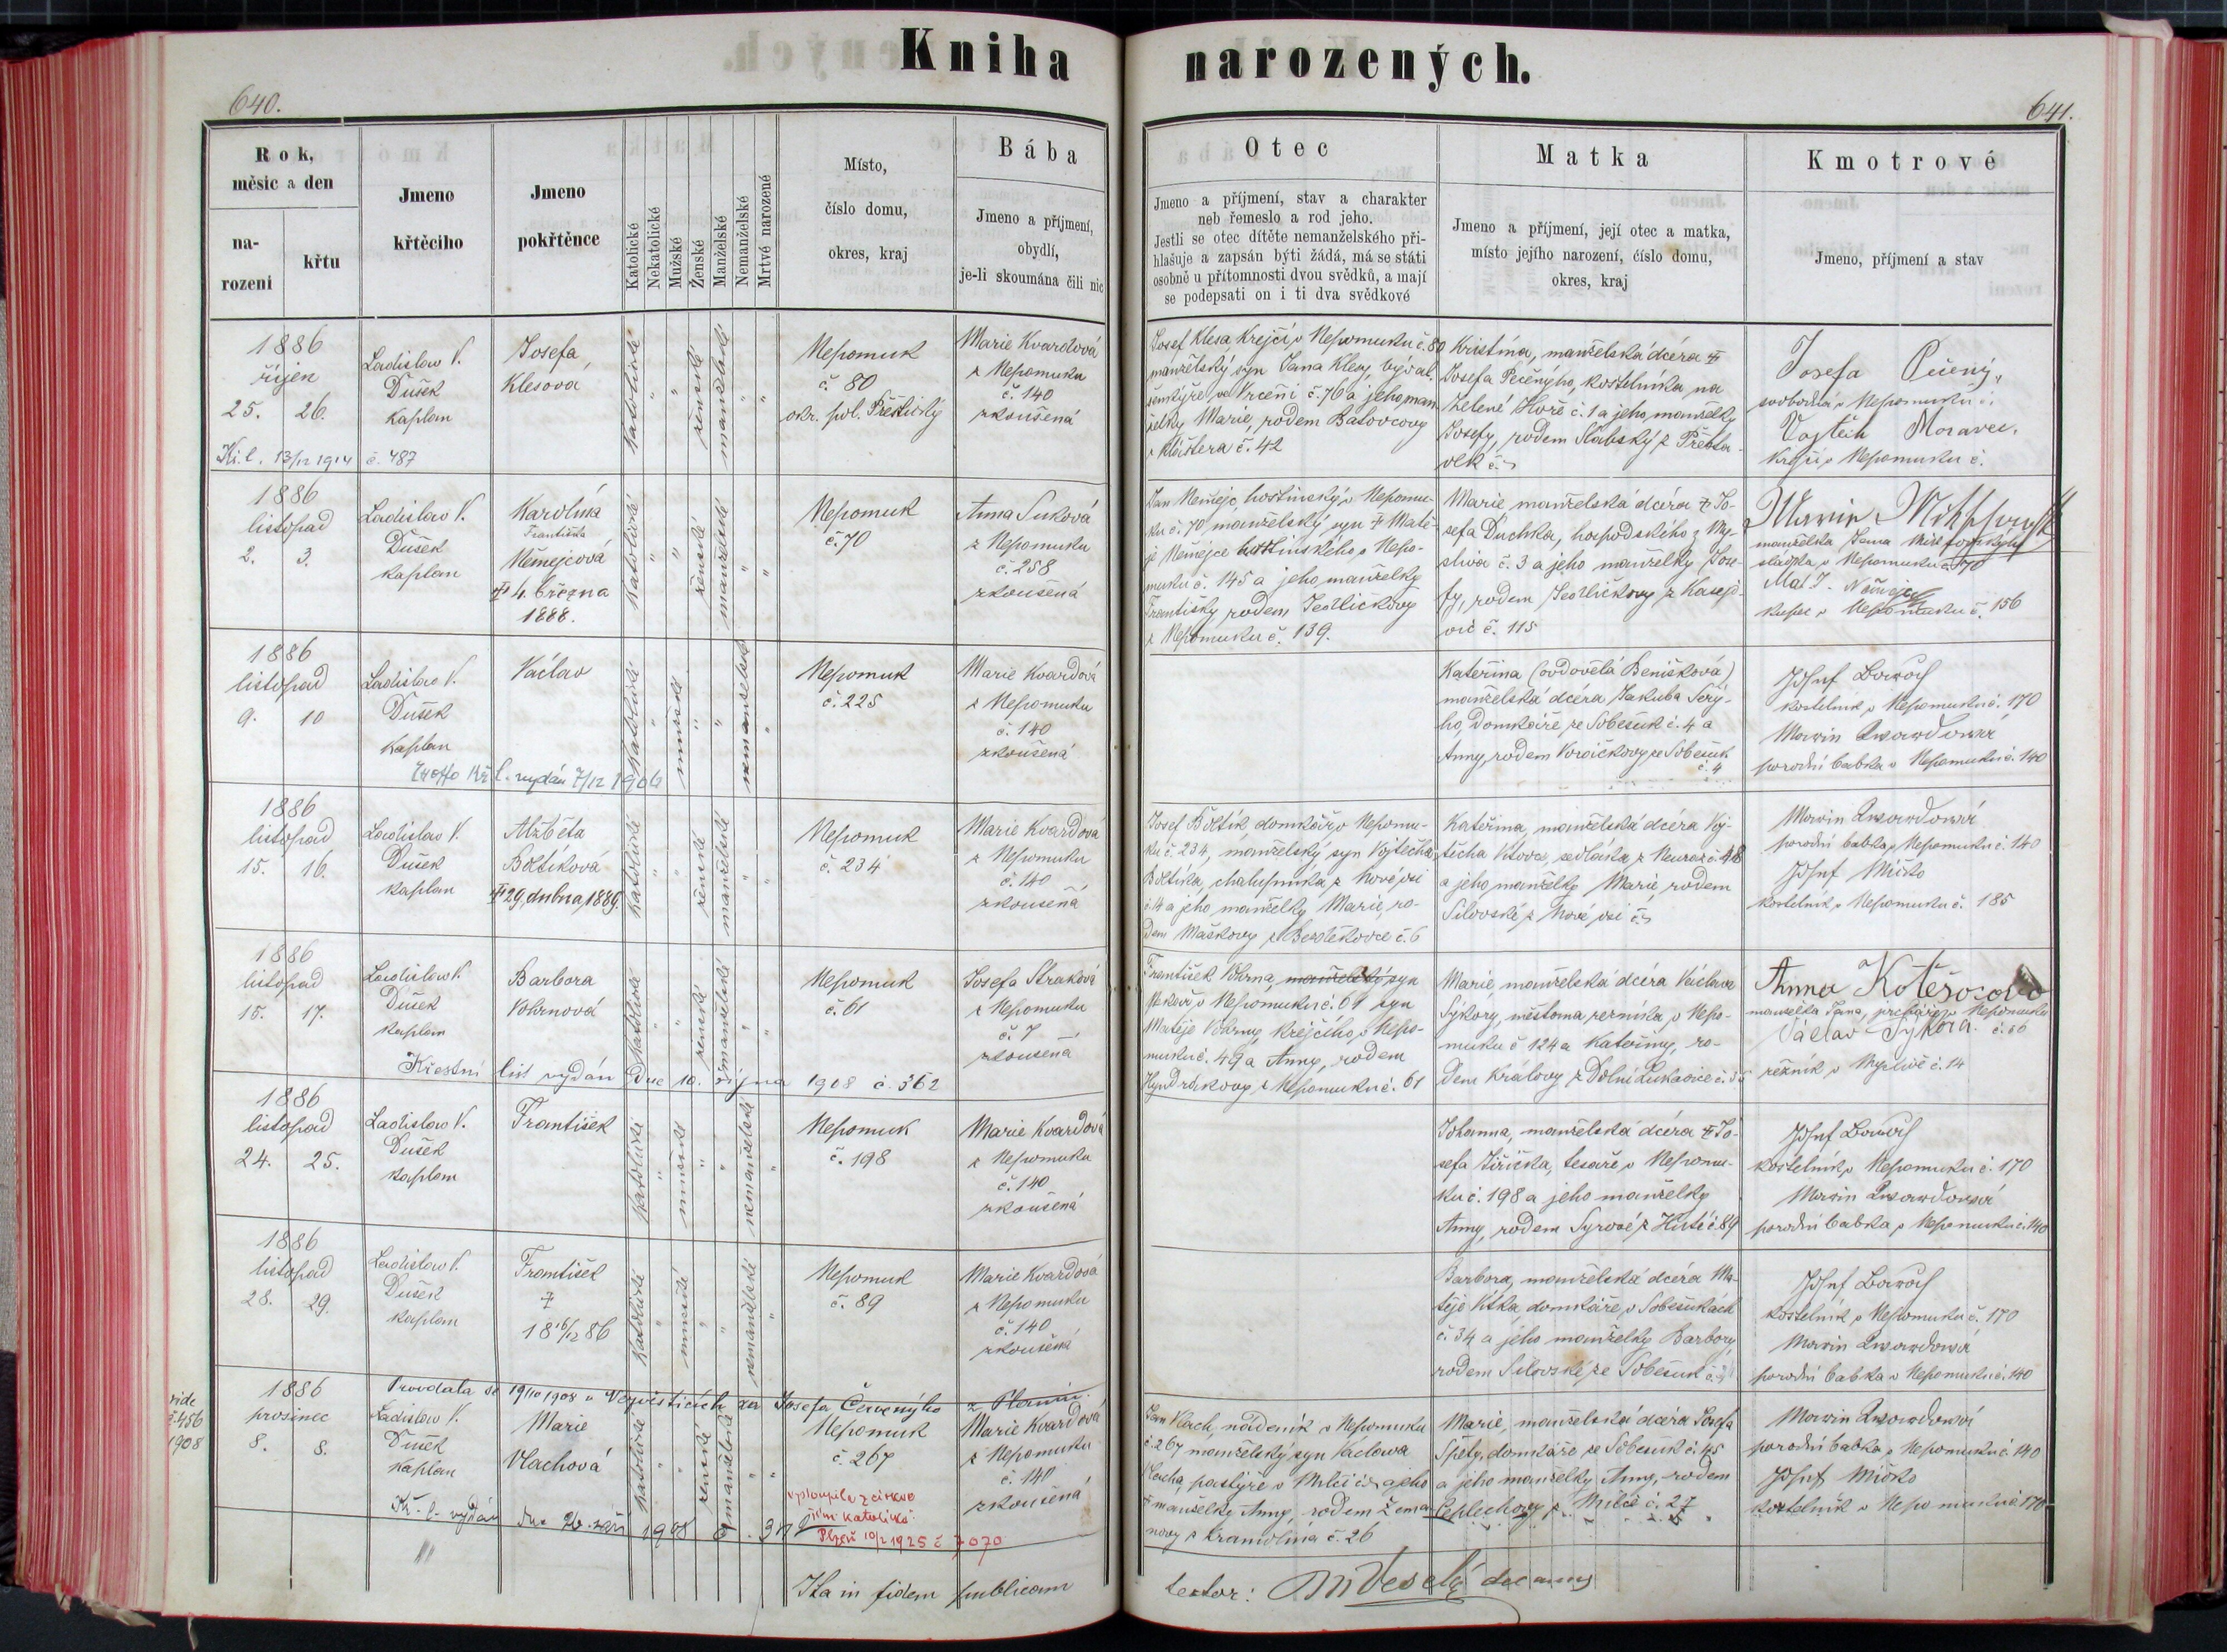 Kniha narozených.
640.
641.
Rok,
měsíc a den
na-
rozeni
křtu
Jmeno
křtěcího
Jmeno
pokřtěnce
Katolické
Nekatolické
Mužské
Ženské
Manželské
Nemanželské
Mrtvé narozené
Místo,
číslo domu,
okres, kraj
Bába
Jmeno a příjmení,
obydlí,
je-li skoumána čili nic
Otec
Jmeno a příjmení, stav a charakter
neb řemeslo a rod jeho.
Jestli se otec dítěte nemanželského při-
hlašuje a zapsán býti žádá, má se státi
osobně u přítomnosti dvou svědků, a mají
se podepsati on i ti dva svědkové
Matka
Jmeno a příjmení, její otec a matka,
místo jejího narození, číslo domu,
okres, kraj
Kmotrové
Jmeno, příjmení a stav
1886
říjen
25. 26.
Ladislav V.
Dušek
Kaplan
Josefa
Klesova
katolické
"
ženské
manželské
"
"
Nepomuk
č. 80
okr. pol. Přeštický
Marie Kvardová
z Nepomuku
č. 140
zkoušená
Josef Klesa Krejčí v Nepomuku č. 80
manželský syn Jana Klesy, býval.
šenkýře ve Vrčeni č. 76 a jeho man
želky Marie, rodem Baťovcovy
z Kláštera č. 42
Kristina, manželská dcéra †
Josefa Pečenýho, kostelníka na
Zelené Hoře č. 1 a jeho manželky
Josefy, rodem Slabský z
Josefa Pečený,
svobodná v Nepomuku č.
Vojtěch Moravec.
Krejčí v Nepomuku č.
Kř. l. 13/12 1914 č. 487
1886
listopad
2. 3.
Ladislav V.
Dušek
kaplan
Karolina
Františka
Němejcová
† 4. března
1888.
katolické
"
"
ženské
manželské
"
"
Nepomuk
č. 70
Anna Suková
z Nepomuku
č. 258
zkoušená
Jan Němejc, hostinský v Nepomu-
ku č. 70 manželský syn † Matě-
je Němejce hostinského v Nepo-
muku č. 145 a jeho manželky
Františky rodem Jedličkovy
z Nepomuku č. 139.
Marie manželská dcéra † Jo-
sefa Duchka, hospodského z My-
sliva č. 3 a jeho manželky Jose-
fy, rodem Jedličkovy z Kasej-
ovic č. 115
Marie
manželka Jana
sládka v Nepomuku č. 70
Mat. J. Němejc
kupec v Nepomuku č. 156
1886
listopad
9. 10
Ladislav V.
Dušek
Kaplan
Václav
katolické
"
mužské
"
"
nemanželské
"
Nepomuk
č. 225
Marie Kvardová
z Nepomuku
č. 140
zkoušená
Kateřina (ovdovělá Benišková)
manželská dcéra Jakuba Šerý-
ho, Domkáře ze Soběsuk č. 4 a
Anny, rodem Vovičkovy ze Soběsuk
č. 4
Josef
kostelník v Nepomuku č. 170
Marie Kvardová
porodní babka v Nepomuku č. 140
Kř. l. vydán 7/12 1906
1886
listopad
15. 16.
Ladislav V.
Dušek
kaplan
Alžběta
Boltíková
† 29. dubna 1889.
katolické
"
"
ženské
manželské
"
"
Nepomuk
č. 234
Marie Kvardová
z Nepomuku
č. 140
zkoušená
Josef Boltík domkář v Nepomu-
ku č. 234, manželský syn Vojtěcha
Boltíka, chalupníka z Novévsi
č. 14 a jeho manželky Marie, ro-
dem Maškovy z Bezděkovce č. 6
Kateřina, manželská dcéra Voj-
těcha Vlove, sedláka z Neuraz č. 48
a jeho manželky Marie, rodem
Silovské z Nové vsi č.
Marie Kvardová
porodní babka v Nepomuku č. 140
Josef Míčko
kostelník v Nepomuku č. 185
1886
listopad
15. 17.
Ladislav V.
Dušek
kaplan
Barbora
Vohrnová
katolické
"
"
ženské
manželské
"
"
Nepomuk
č. 61
Josefa Straková
z Nepomuku
č. 7
zkoušená
František Vohrna, manželský syn
pekař v Nepomuku č. 61 syn
Matěje Vohrny, krejčího v Nepo-
muku č. 49 a Anny, rodem
Hyndrákovy z Nepomuku č. 61
Marie, manželská dcéra Václava
Sýkory, měšťana řezníka v Nepo-
muku č 124 a Kateřiny, ro-
dem Kralovy z Dolní Lukavice č. 35
Anna Kotěšovcová
manželka Jana, v Nepomuku
č. 66
Václav Sýkora.
řezník v Myslívě č. 14
Křestní list vydán dne 10. října 1908 č. 362
1886
listopad
24. 25.
Ladislav V.
Dušek
kaplan
František
katolické
"
mužské
"
"
nemanželské
"
Nepomuk
č. 198
Marie Kvardová
z Nepomuku
č. 140
zkoušená
Johanna, manželská dcéra † Jo-
sefa Jiřička, tesaře v Nepomu-
ku č. 198 a jeho manželky
Anny, rodem Syrové z Huté č. 89
Josef
kostelník v Nepomuku č. 170
Marie Kvardová
porodní babka v Nepomuku č. 140
1886
listopad
28. 29.
Ladislav V.
Dušek
kaplan
František
†
18 16/12 86
katolické
"
mužské
"
"
nemanželské
"
Nepomuk
č. 89
Marie Kvardová
z Nepomuku
č. 140
zkoušená
Barbora, manželská dcéra Ma-
těje Vítka, domkáře v Soběsukách
č. 34 a jeho manželky Barbory
rodem Silovské ze Soběsuk č.
Josef
kostelník v Nepomuku č. 170
Marie Kvardová
porodní babka v Nepomuku č. 140
Provdala se 19/10 1908 v Nezvěsticích za Josefa Červenýho z Plzeně.
vide
č. 456
1908
1886
prosinec
8. 8.
Ladislav V.
Dušek
Kaplan
Marie
Vlachová
katolické
"
"
ženské
manželské
"
"
Nepomuk
č. 267
Marie Kvardová
z Nepomuku
č. 140
zkoušená
Jan Vlach, nádeník v Nepomuku
č. 267 manželský syn Václava
Vlacha, pastýře v Milči č. a jeho
† manželky Anny, rodem Zema-
novy z Kramolína č. 26
Marie, manželská dcéra Josefa
Špéty, domkáře ze Soběsuk č. 45
a jeho manželky Anny, rodem
Ceplechovy z Milče č. 27
Marie Kvardová
porodní babka v Nepomuku č. 140
Josef Míčko
kostelník v Nepomuku č. 170
Kř. l. vydán dne 26. září 1908
vystoupila z církve
řím: katolické:
Plzeň 10/2 1925 č 7070
Ita in fidem publicam
testor: Veselý decanus